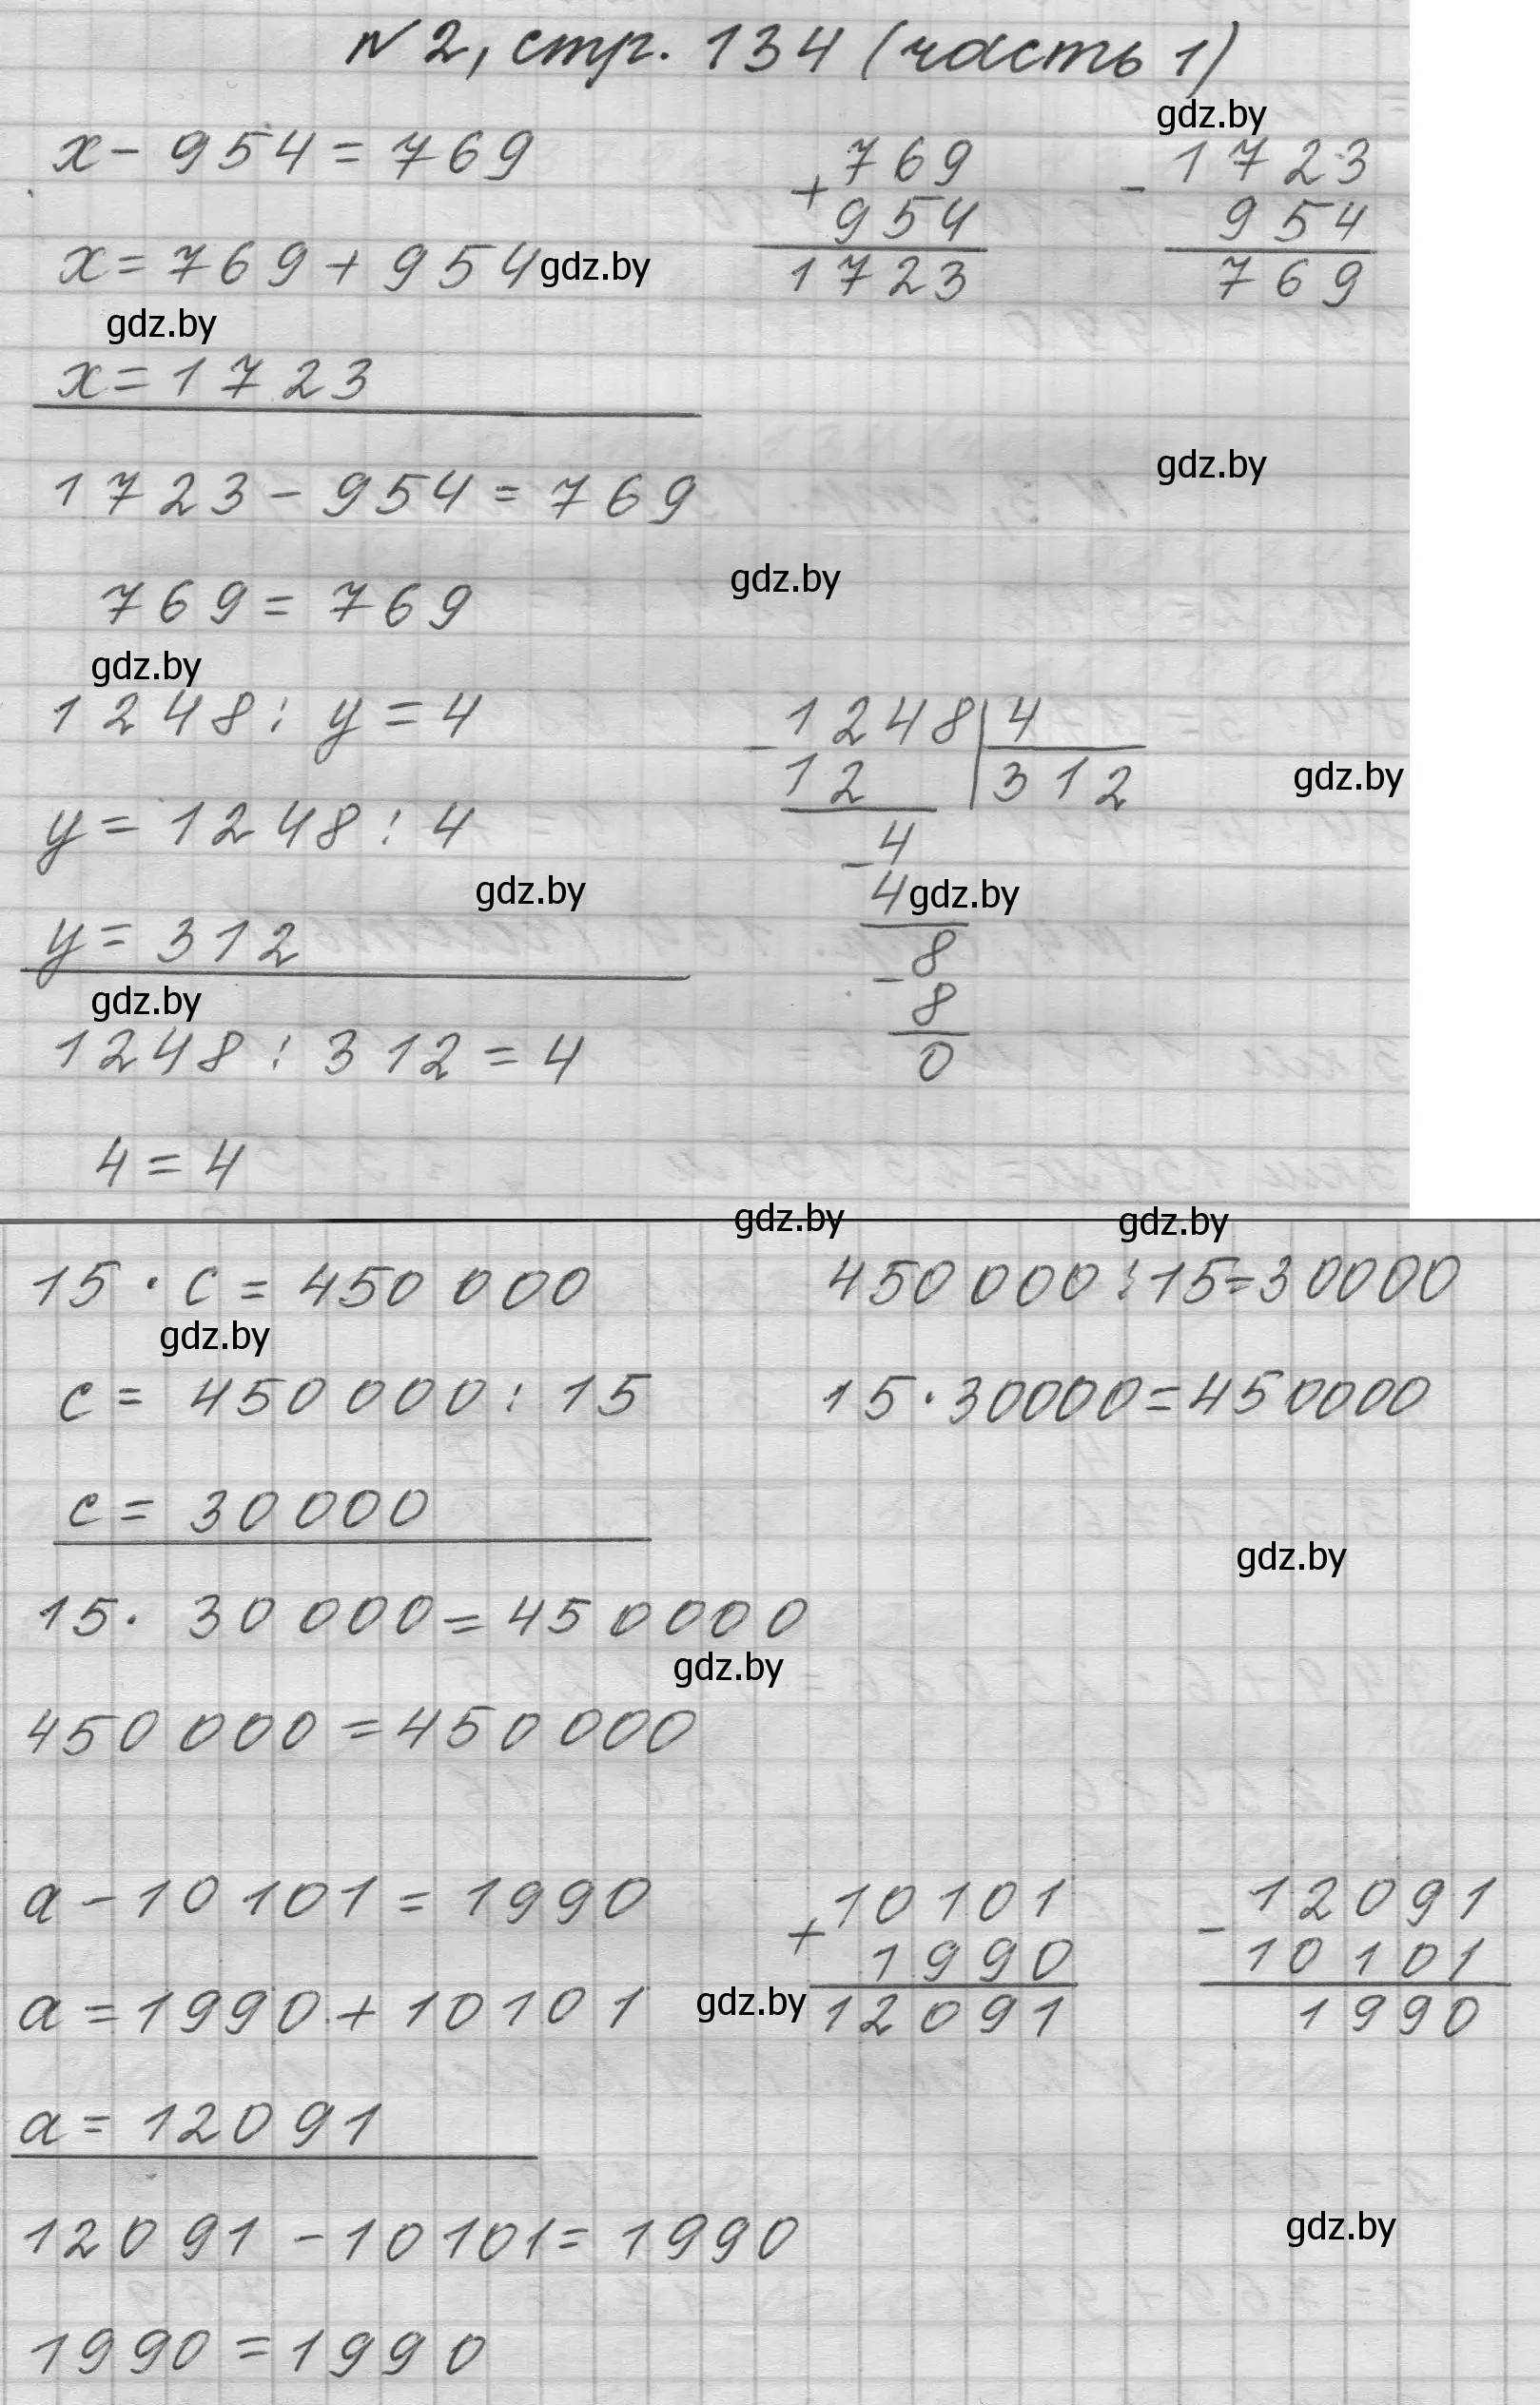 №2, стр. 134 (часть 1)
gdz.by
x - 954 = 769
+ 769
954
1723
- 1723
954
769
x = 769 + 954 gdz.by
gdz.by
x = 1723
gdz.by
1723 - 954 = 769
gdz.by
769 = 769
gdz.by
1248 : y = 4
- 1248 | 4
12 312
gdz.by
y = 1248 : 4
- 4
gdz.by
4 gdz.by
y = 312
- 8
8
0
gdz.by
1248 : 312 = 4
4 = 4
gdz.by
gdz.by
15 · c = 450 000
450 000 : 15 = 30000
gdz.by
c = 450 000 : 15
15 · 30000 = 450000
c = 30000
gdz.by
15 · 30 000 = 450000
gdz.by
450 000 = 450 000
a - 10 101 = 1990
+ 10101
1990
12091
- 12091
10101
1990
a = 1990 + 10101
gdz.by
a = 12091
12091 - 10101 = 1990
gdz.by
1990 = 1990